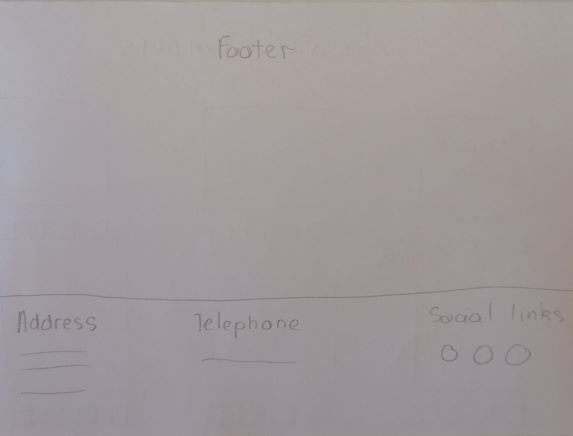 Footer
Address Telephone Social links